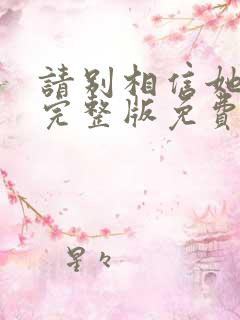 請別相信她
完整版免費
星々